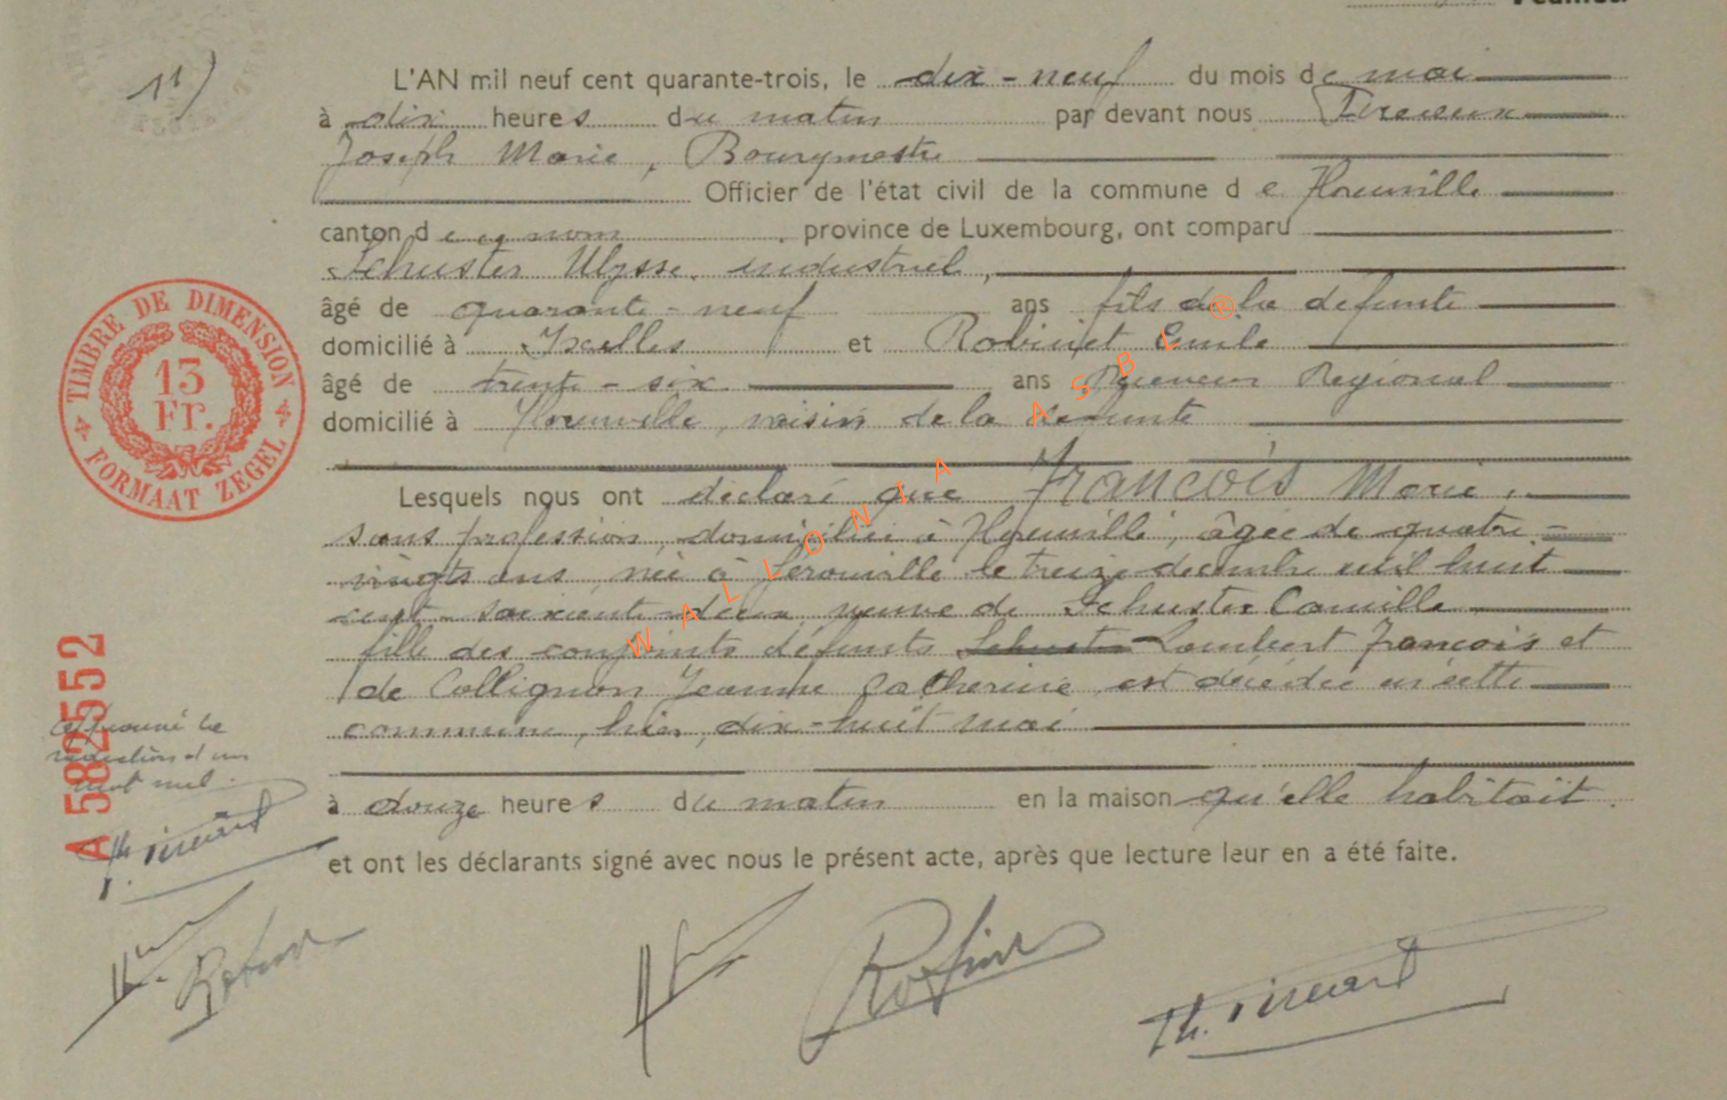 11)
L'AN mil neuf cent quarante-trois, le dix-neuf du mois de mai
à dix heures du matin par devant nous
Joseph Marie, Bourgmestre
Officier de l'état civil de la commune de Florenville
canton de ce nom, province de Luxembourg, ont comparu
Schuster Ulysse, industriel,
âgé de quarante-neuf ans fils de la défunte
domicilié à Ixelles et Robinet Emile
âgé de trente-six ans Receveur Régional
domicilié à Florenville, voisin de la défunte
Lesquels nous ont déclaré que François Marie,
sans profession, domiciliée à Florenville, âgée de quatre-
vingts ans, née à Gérouville le treize décembre mil huit
cent soixante-deux, veuve de Schuster Camille
fille des conjoints défunts Schuster Lambert François et
de Collignon Jeanne Catherine, est décédée en cette
commune, hier, dix-huit mai
à douze heures du matin en la maison qu'elle habitait.
et ont les déclarants signé avec nous le présent acte, après que lecture leur en a été faite.
TIMBRE DE DIMENSION
13
Fr.
FORMAAT ZEGEL
A 582552
Approuvé la
radiation d'un
mot nul.
WALLONIA ASBL ®